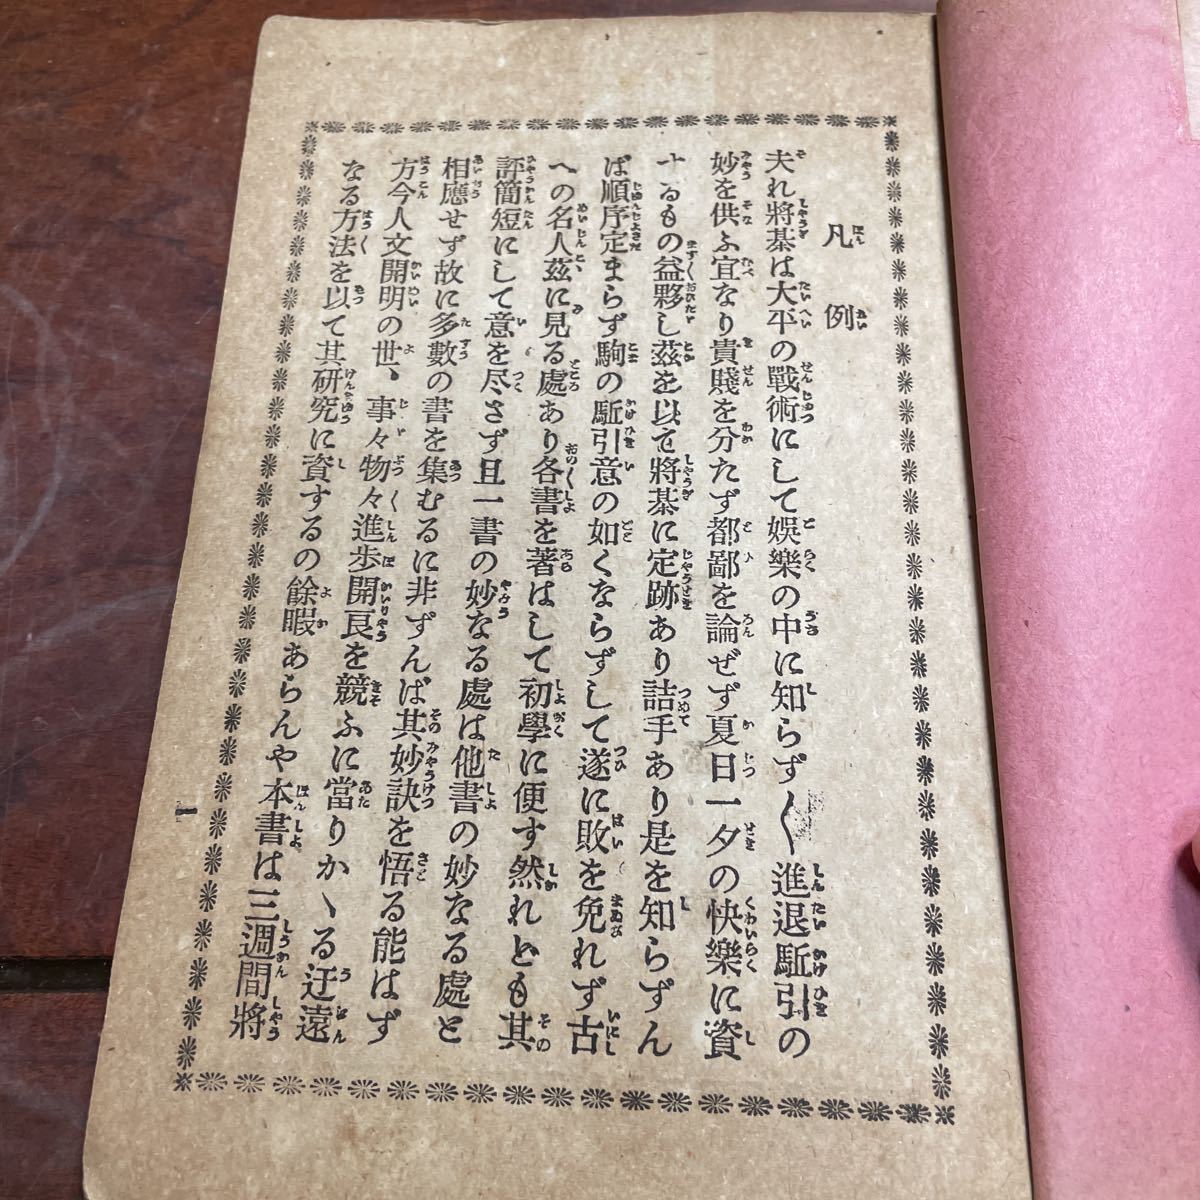 凡例
夫れ將棊は大平の戰術にして娯樂の中に知らず〱進退駈引の
妙を供ふ宜なり貴賤を分たず都鄙を論ぜず夏日一夕の快樂に資
するもの益夥し茲を以て將棊に定跡あり詰手あり是を知らずん
ば順序定まらず駒の駈引意の如くならずして遂に敗を免れず古
への名人茲に見る處あり各書を著はして初學に便す然れとも其
評簡短にして意を尽さず且一書の妙なる處は他書の妙なる處と
相應せず故に多數の書を集むるに非ずんば其妙訣を悟る能はず
方今人文開明の世、事々物々進歩開良を競ふに當りかゝる迂遠
なる方法を以て其研究に資するの餘暇あらんや本書は三週間將
一